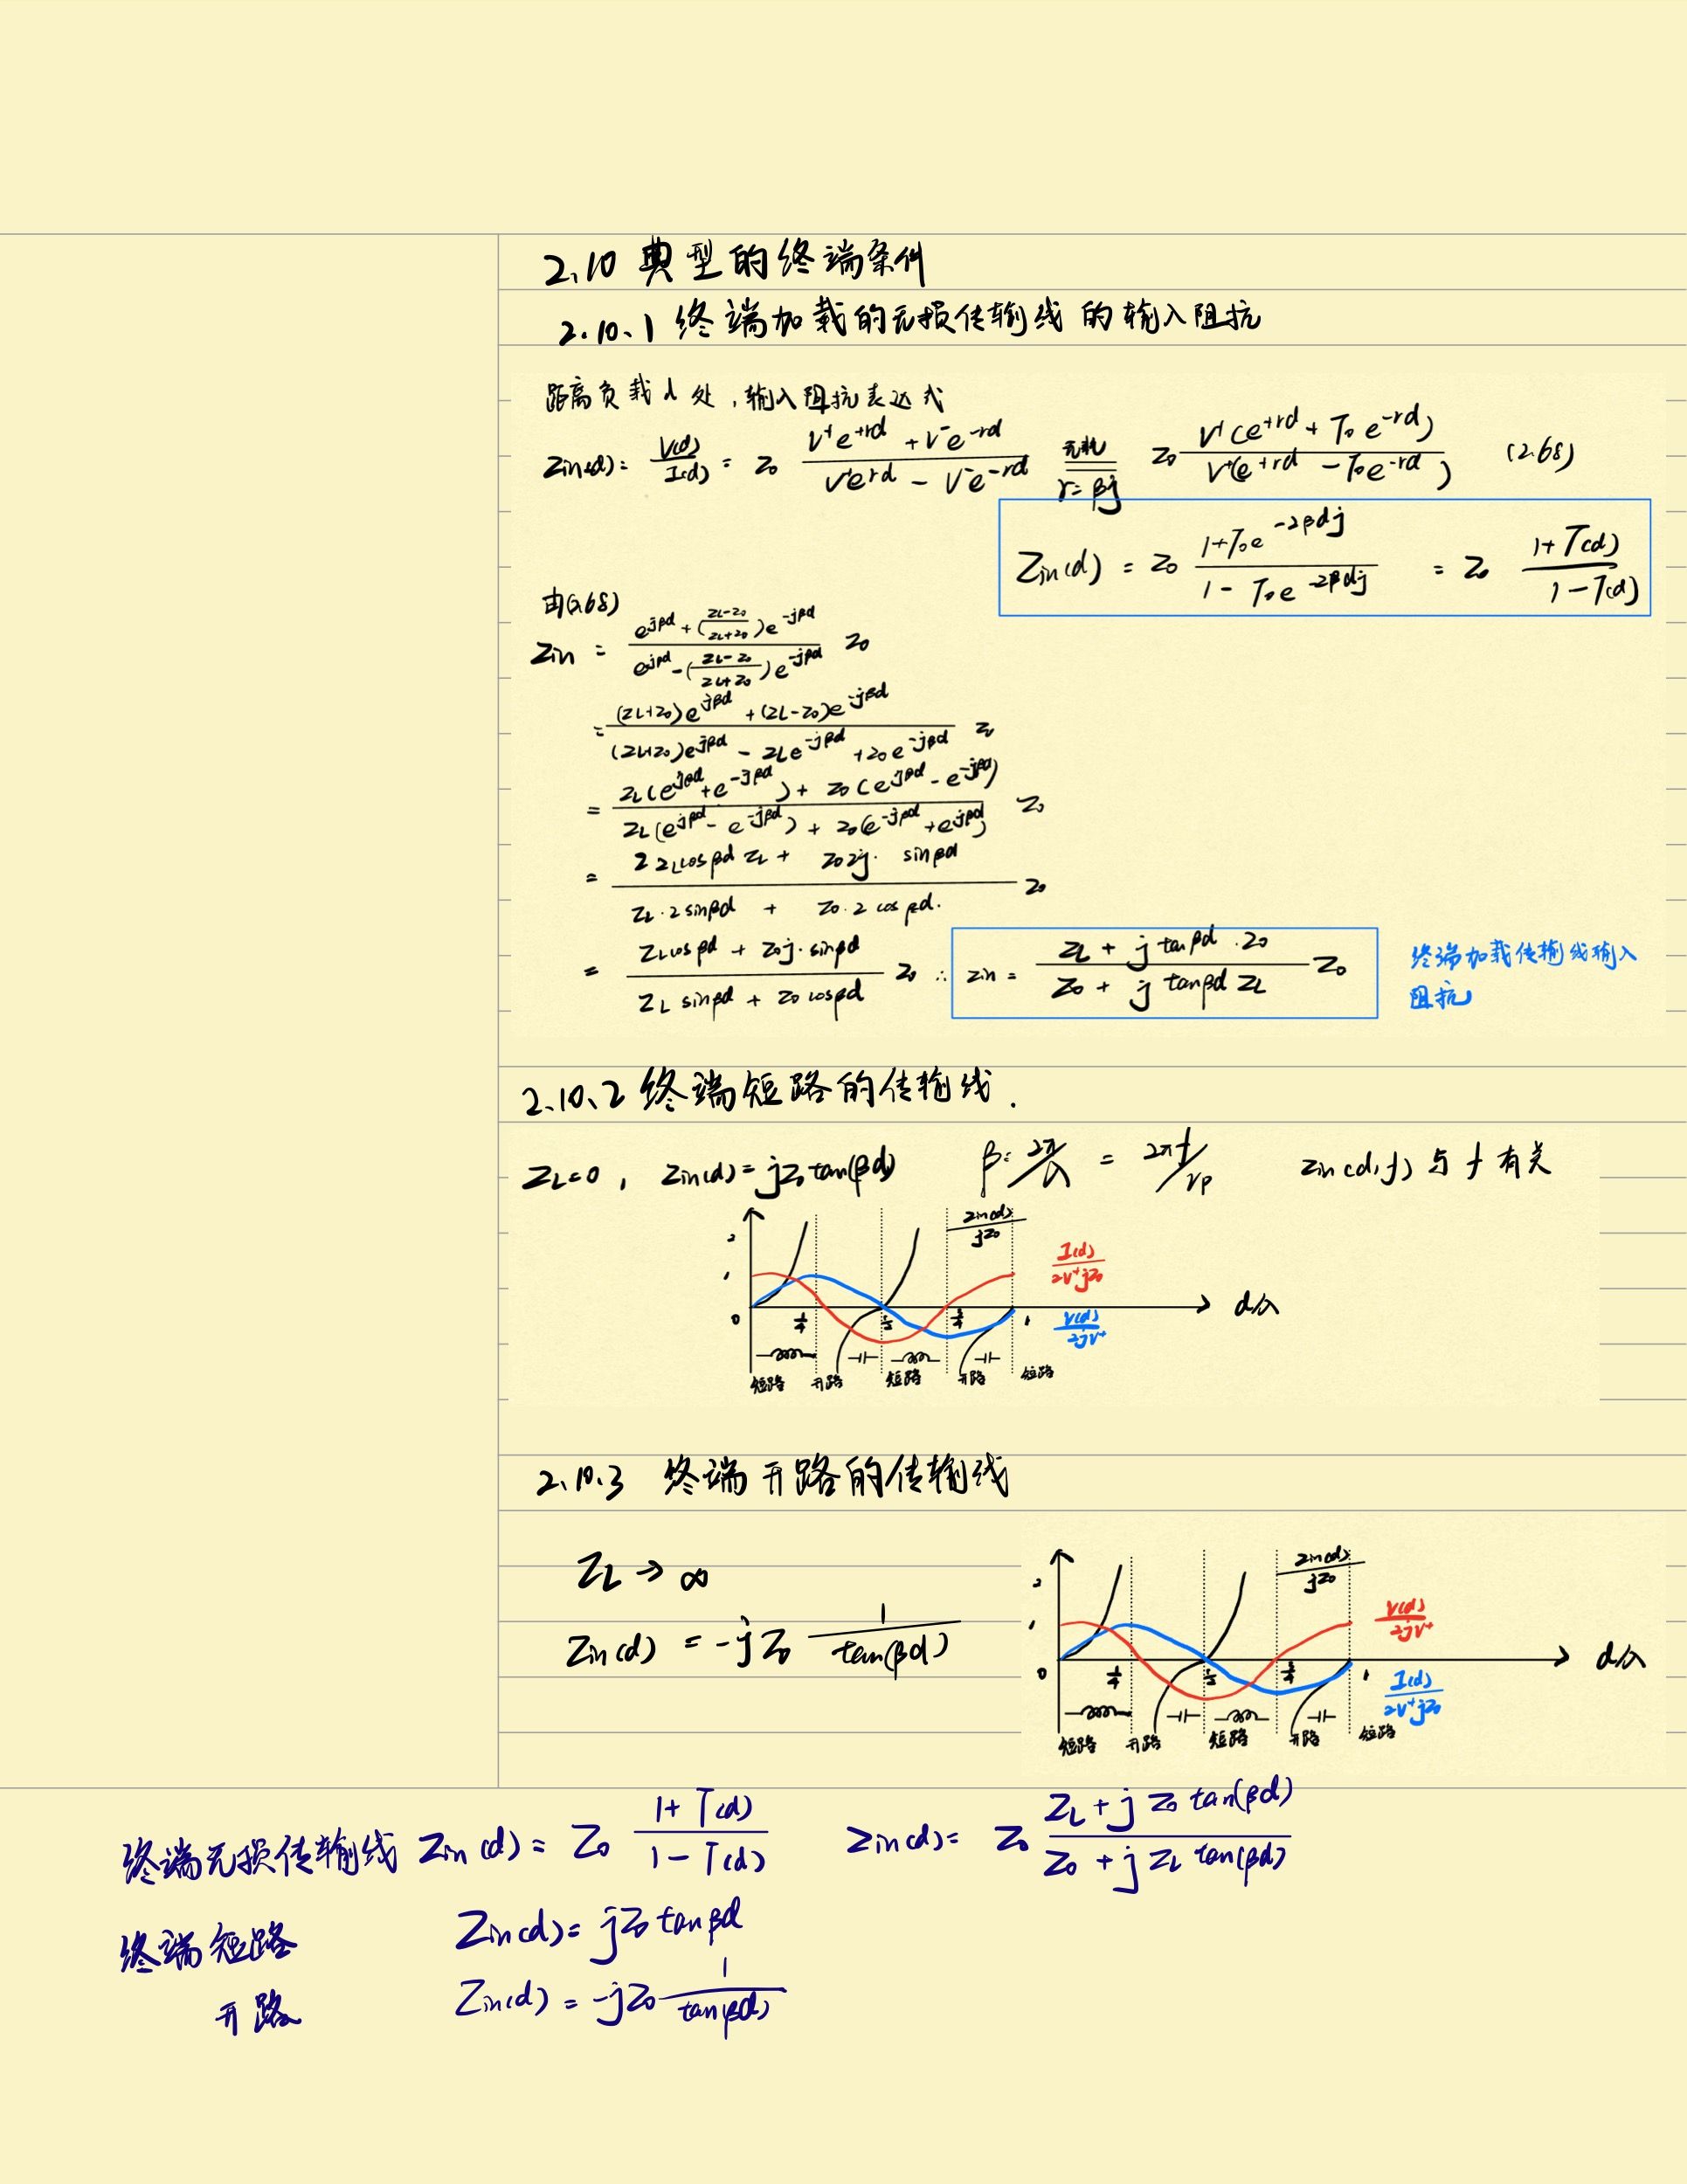 2.10 典型的终端条件
2.10.1 终端加载的无损传输线的输入阻抗
距离负载d处,输入阻抗表达式
Zin(d) = V(d)/I(d) = Z0 (V⁺e^{+rd} + V⁻e^{-rd})/(V⁺e^{rd} - V⁻e^{-rd}) 无耗 r=βj Z0 V⁺(e^{+rd} + Γ0e^{-rd})/V⁺(e^{+rd} - Γ0e^{-rd}) (2.68)
Zin(d) = Z0 (1+Γ0e^{-2βdj})/(1-Γ0e^{-2βdj}) = Z0 (1+Γ(d))/(1-Γ(d))
由(2.68)
Zin = (e^{jβd} + ((ZL-Z0)/(ZL+Z0))e^{-jβd})/(e^{jβd} - ((ZL-Z0)/(ZL+Z0))e^{-jβd}) Z0
= ((ZL+Z0)e^{jβd} + (ZL-Z0)e^{-jβd})/((ZL+Z0)e^{jβd} - ZLe^{-jβd} + Z0e^{-jβd}) Z0
= (ZL(e^{jβd}+e^{-jβd}) + Z0(e^{jβd} - e^{-jβd}))/(ZL(e^{jβd} - e^{-jβd}) + Z0(e^{-jβd} + e^{jβd})) Z0
= (2ZLcosβd ZL + Z02j·sinβd)/(ZL·2sinβd + Z0·2cosβd.) Z0
= (ZLcosβd + Z0j·sinβd)/(ZLsinβd + Z0cosβd) Z0 ∴ Zin = (ZL + j tanβd·Z0)/(Z0 + j tanβd ZL) Z0
终端加载传输线输入
阻抗
2.10.2 终端短路的传输线.
ZL=0, Zin(d)=jZ0tan(βd) β=2π/λ = 2πf/vp Zin(d,f) 与 f 有关
Zin(d)/jZ0
2
I(d)/2V⁺jZ0
1
0 1/4 1/2 3/4 1 d/λ
V(d)/2jV⁺
短路 开路 短路 开路 短路
2.10.3 终端开路的传输线
ZL→∞
Zin(d) = -jZ0 1/tan(βd)
Zin(d)/jZ0
2
V(d)/2jV⁺
1
0 1/4 1/2 3/4 1 d/λ
I(d)/2V⁺jZ0
短路 开路 短路 开路 短路
终端无损传输线 Zin(d) = Z0 (1+Γ(d))/(1-Γ(d)) Zin(d) = Z0 (ZL + jZ0tan(βd))/(Z0 + jZLtan(βd))
终端短路 Zin(d) = jZ0tanβd
开路 Zin(d) = -jZ0 1/tan(βd)